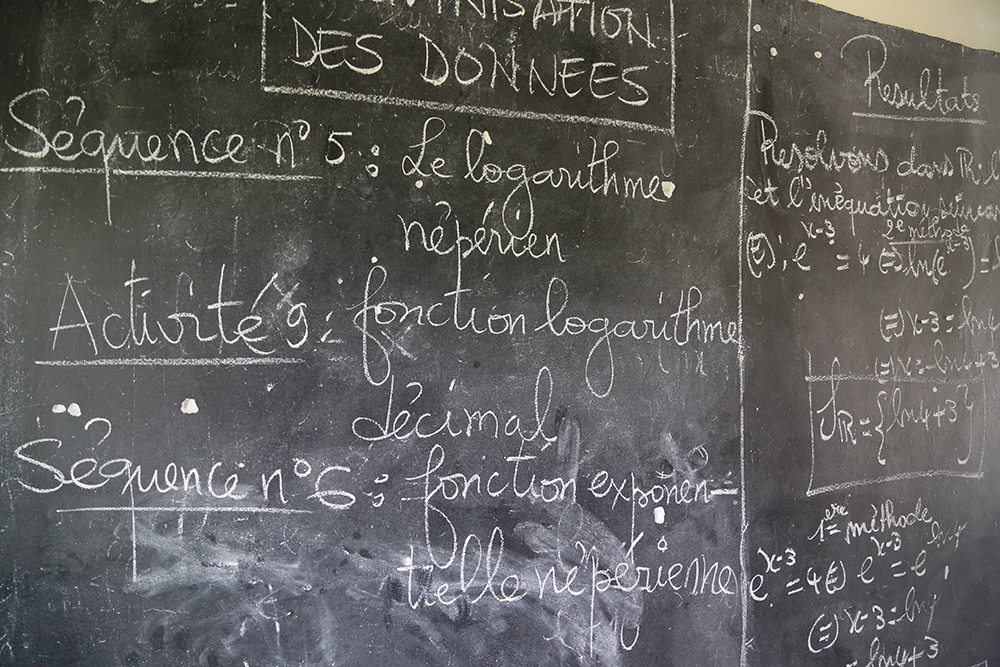 DES DONNEES
Séquence n° 5 : Le logarithme
népérien
Activité 9 : fonction logarithme
décimal
Séquence n° 6 : fonction exponen-
tielle népérienne
Resultats
Resolvons dans ℝ
et l'inéquation
2e méthode
(E) : e^x-3 = 4 (=) ln(e^x-3) =
(=) x-3 = ln4
(=) x = ln4+3
Sℝ = {ln4+3}
1ère méthode
e^x-3 = 4 (=) e^x-3 = e^ln4
(=) x-3 = ln4
= ln4+3